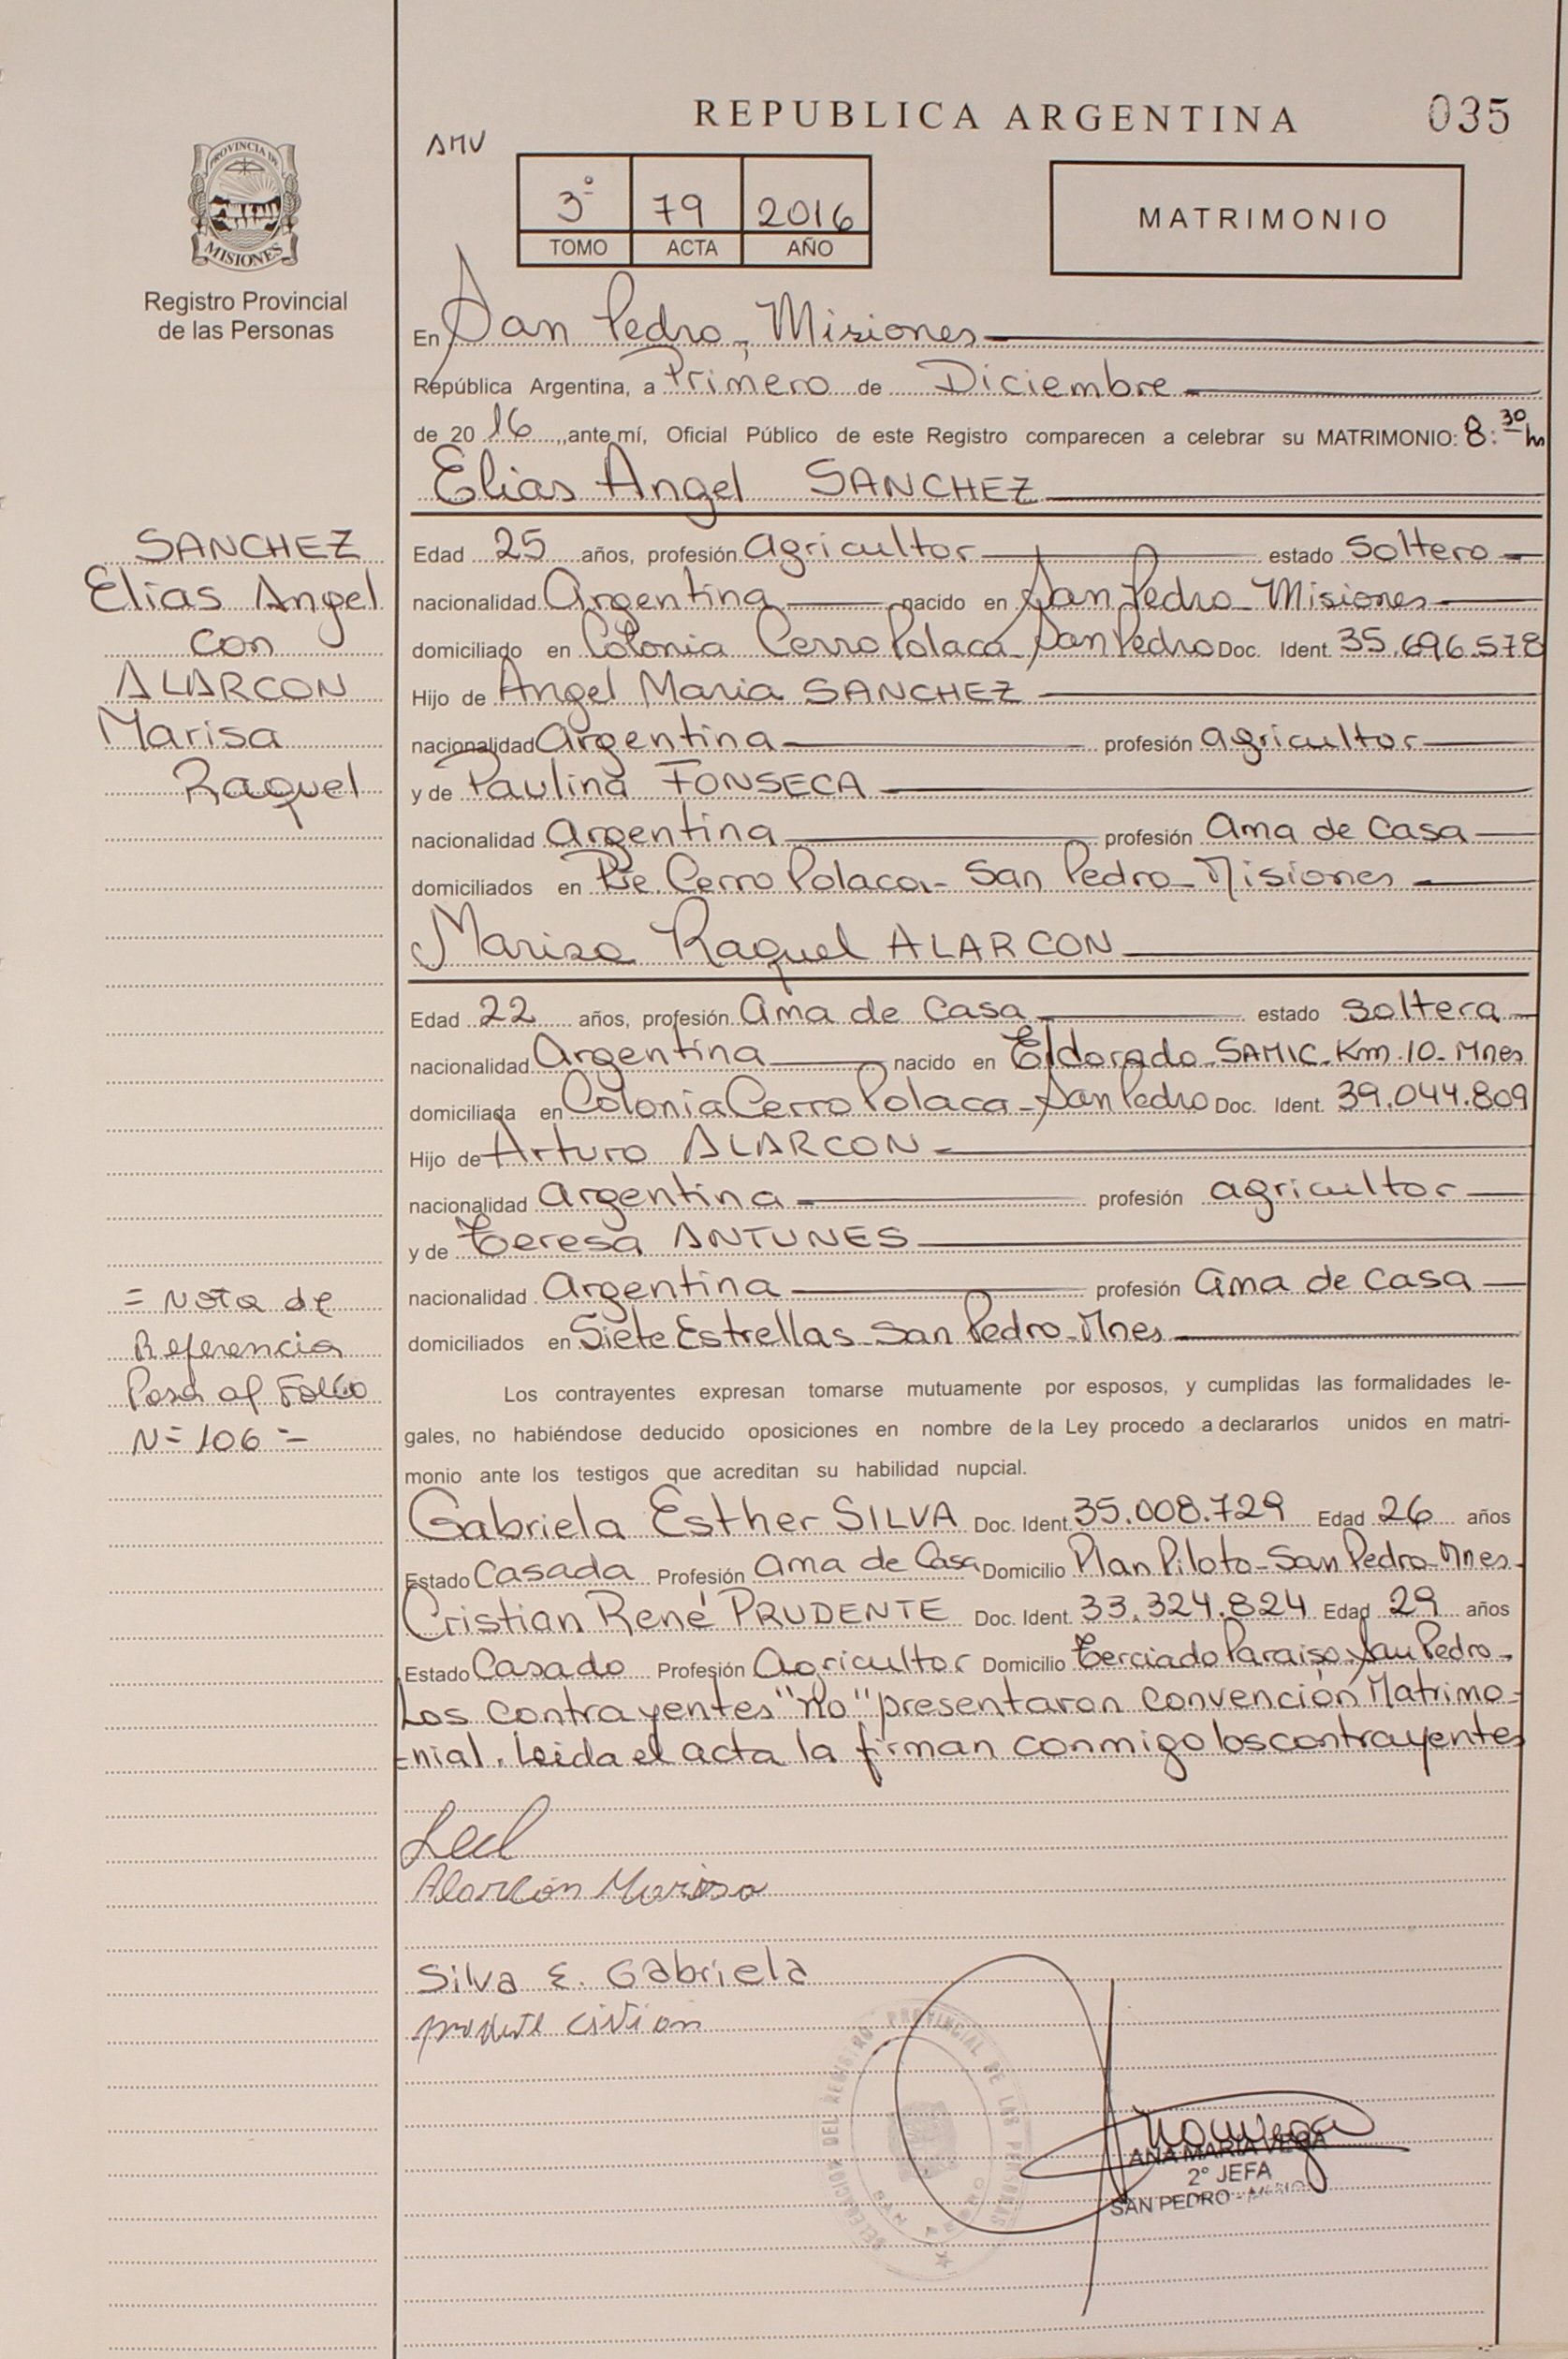 REPUBLICA ARGENTINA
035
AMV
3° 79 2016
TOMO ACTA AÑO
MATRIMONIO
PROVINCIA DE
MISIONES
Registro Provincial
de las Personas
En San Pedro, Misiones
República Argentina, a Primero de Diciembre
de 20 16, ante mí, Oficial Público de este Registro comparecen a celebrar su MATRIMONIO: 8:30 hs
Elias Angel SANCHEZ
SANCHEZ
Elias Angel
con
ALARCON
Marisa
Raquel
Edad 25 años, profesión agricultor estado soltero
nacionalidad Argentina nacido en San Pedro Misiones
domiciliado en Colonia Cerro Polaca San Pedro Doc. Ident. 35.696.578
Hijo de Angel Maria SANCHEZ
nacionalidad Argentina profesión agricultor
y de Paulina FONSECA
nacionalidad Argentina profesión Ama de Casa
domiciliados en Pje. Cerro Polaca - San Pedro - Misiones
Marisa Raquel ALARCON
Edad 22 años, profesión Ama de Casa estado soltera
nacionalidad Argentina nacido en Eldorado SAMIC. Km. 10 - Mnes
domiciliada en Colonia Cerro Polaca - San Pedro Doc. Ident. 39.044.809
Hijo de Arturo ALARCON
nacionalidad Argentina profesión agricultor
y de Teresa ANTUNES
nacionalidad Argentina profesión ama de casa
domiciliados en Siete Estrellas - San Pedro - Mnes
= Nota de
Referencia
Pasa al Folio
N= 106 =
Los contrayentes expresan tomarse mutuamente por esposos, y cumplidas las formalidades le-
gales, no habiéndose deducido oposiciones en nombre de la Ley procedo a declararlos unidos en matri-
monio ante los testigos que acreditan su habilidad nupcial.
Gabriela Esther SILVA Doc. Ident. 35.008.729 Edad 26 años
Estado Casada Profesión Ama de Casa Domicilio Plan Piloto - San Pedro - Mnes.
Cristian René PRUDENTE Doc. Ident. 33.324.824 Edad 29 años
Estado Casado Profesión Agricultor Domicilio Terciado Paraiso, San Pedro.
Los contrayentes "no" presentaron convención Matrimo-
-nial. Leida el acta la firman conmigo los contrayentes
Alarcón Marisa
Silva E. Gabriela
DELEGACION DEL REGISTRO PROVINCIAL DE LAS PERSONAS
ANA MARIA VERA
2° JEFA
SAN PEDRO -